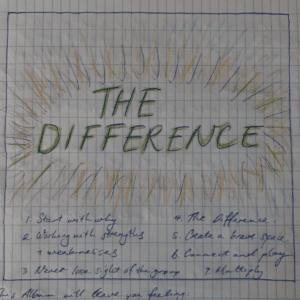 THE
DIFFERENCE
1. Start with why
2. Working with strengths
+ weaknesses
3 Never lose sight of the group
4. The Difference.
5. Create a brave space.
6 Connect and play
7. Multiply
This Album will leave you feeling.